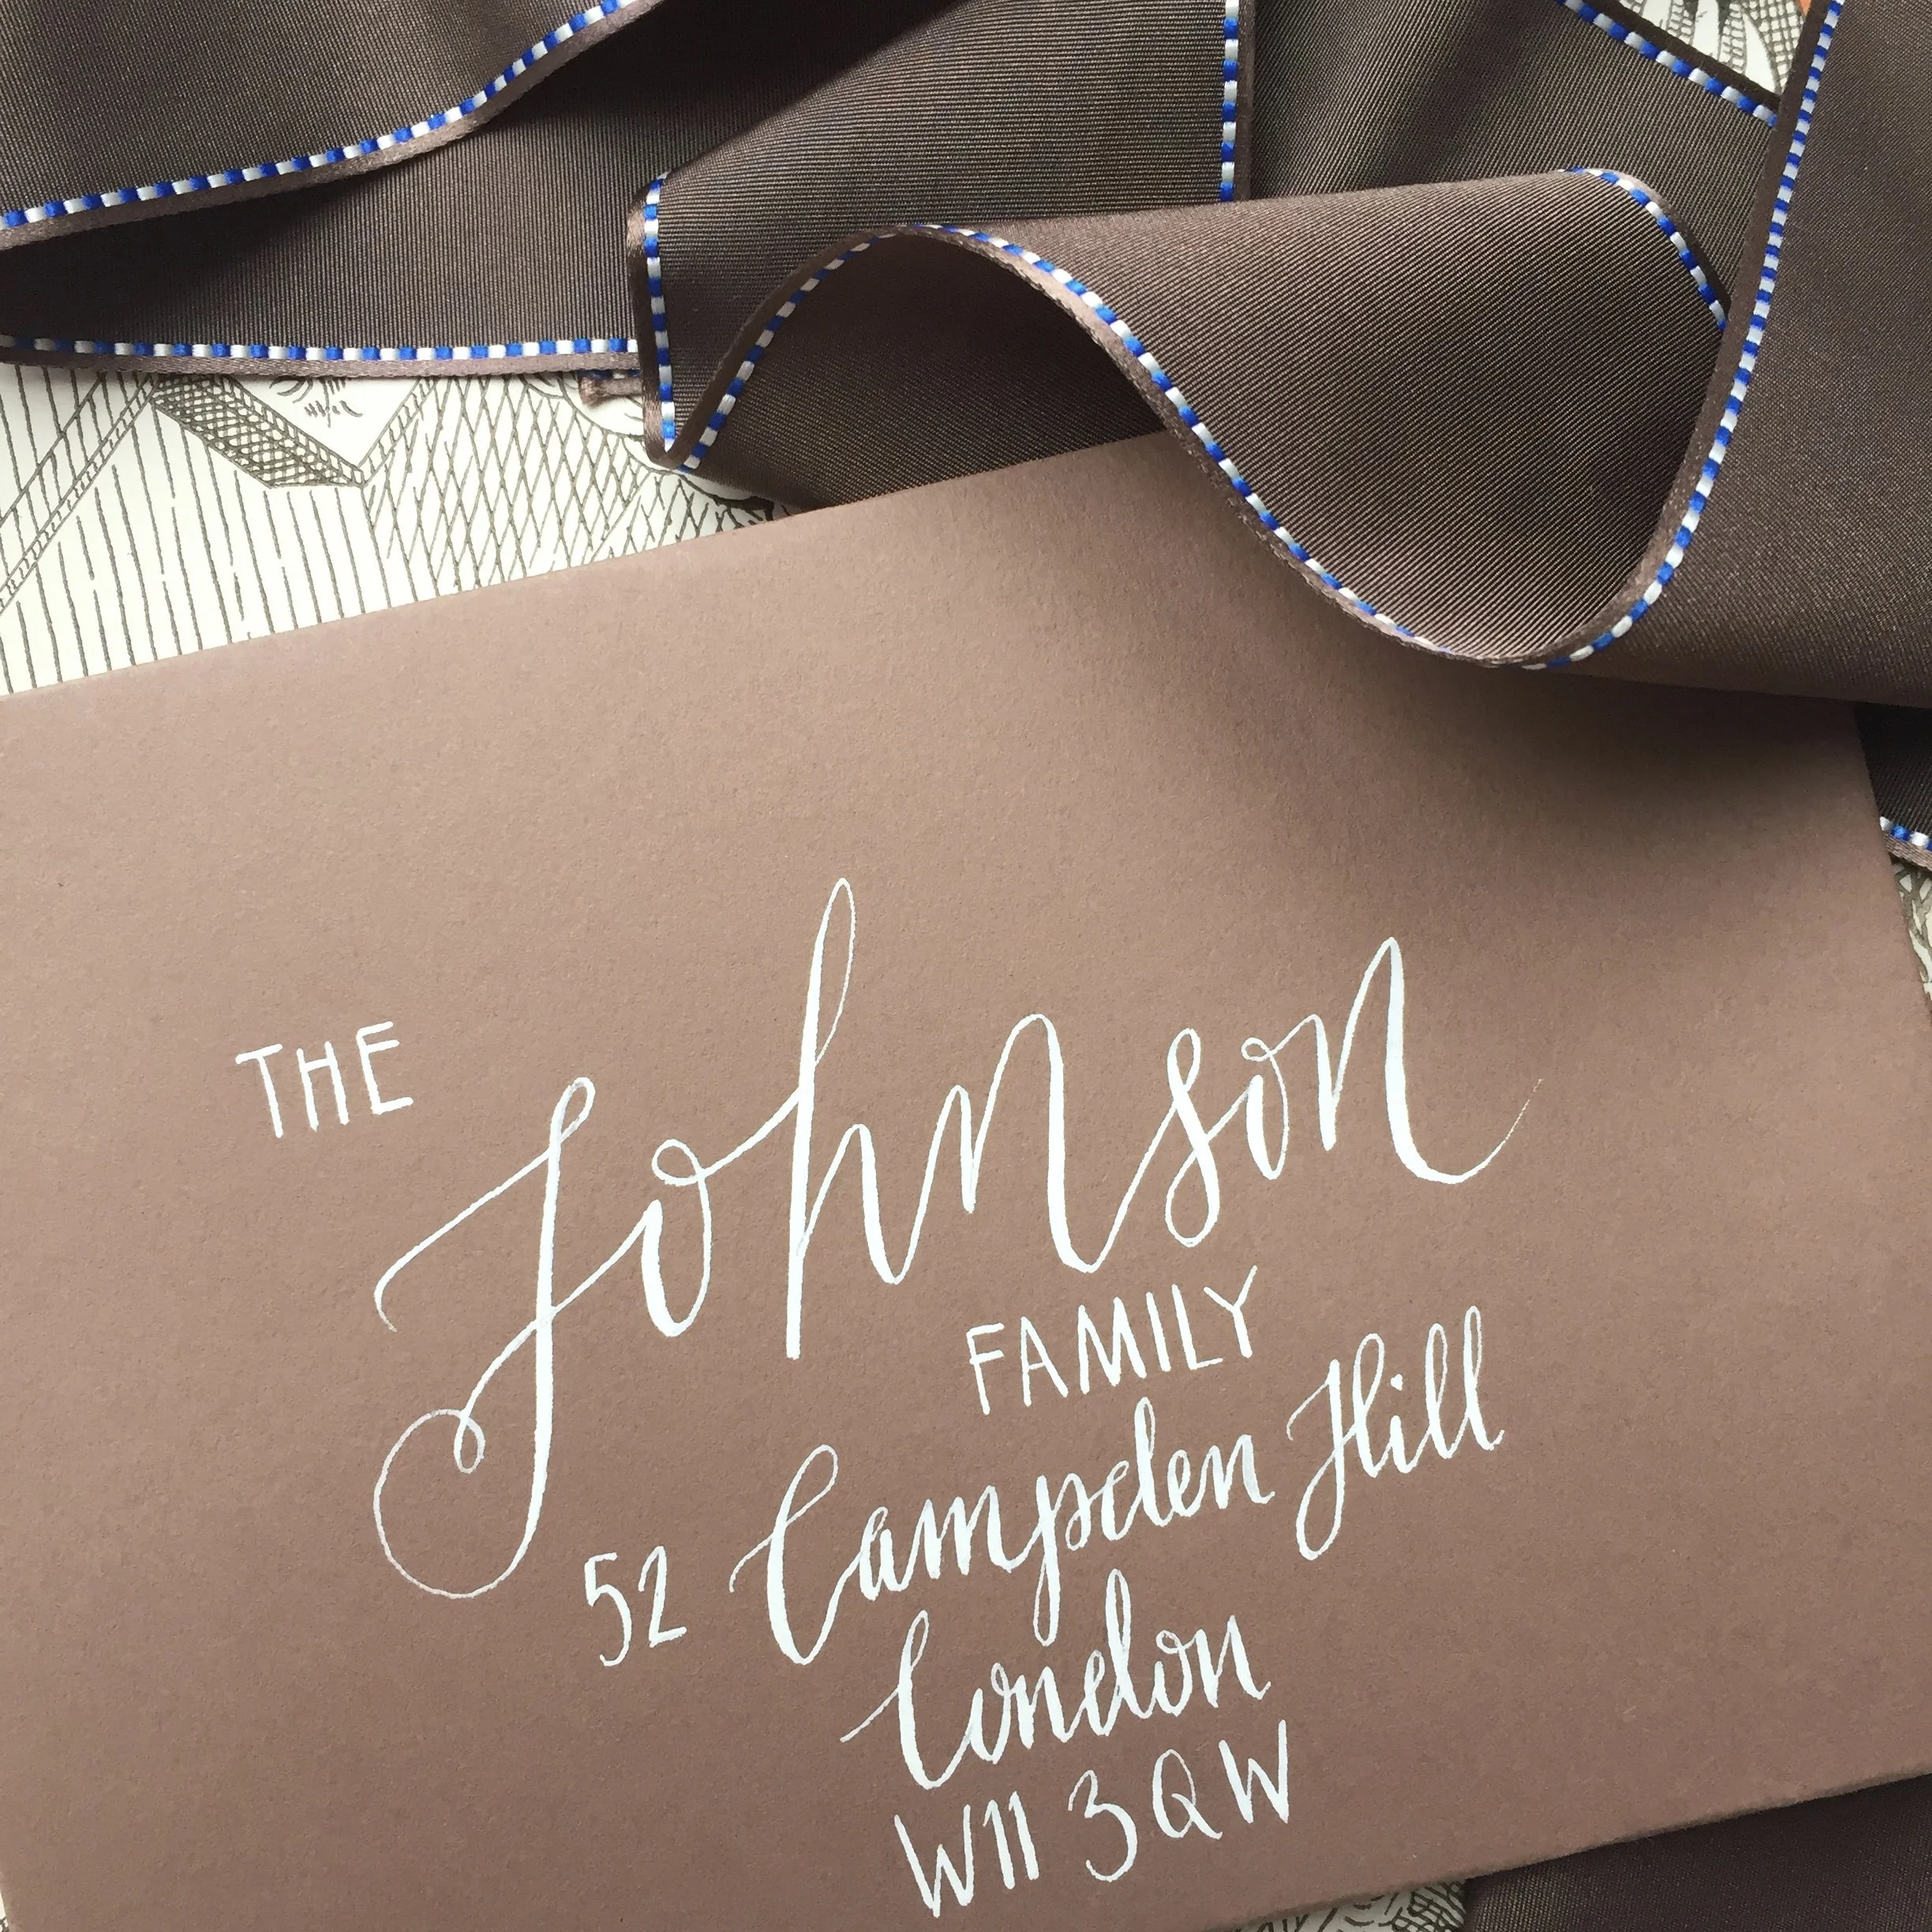 THE
Johnson
FAMILY
52 Campden Hill
London
W11 3QW